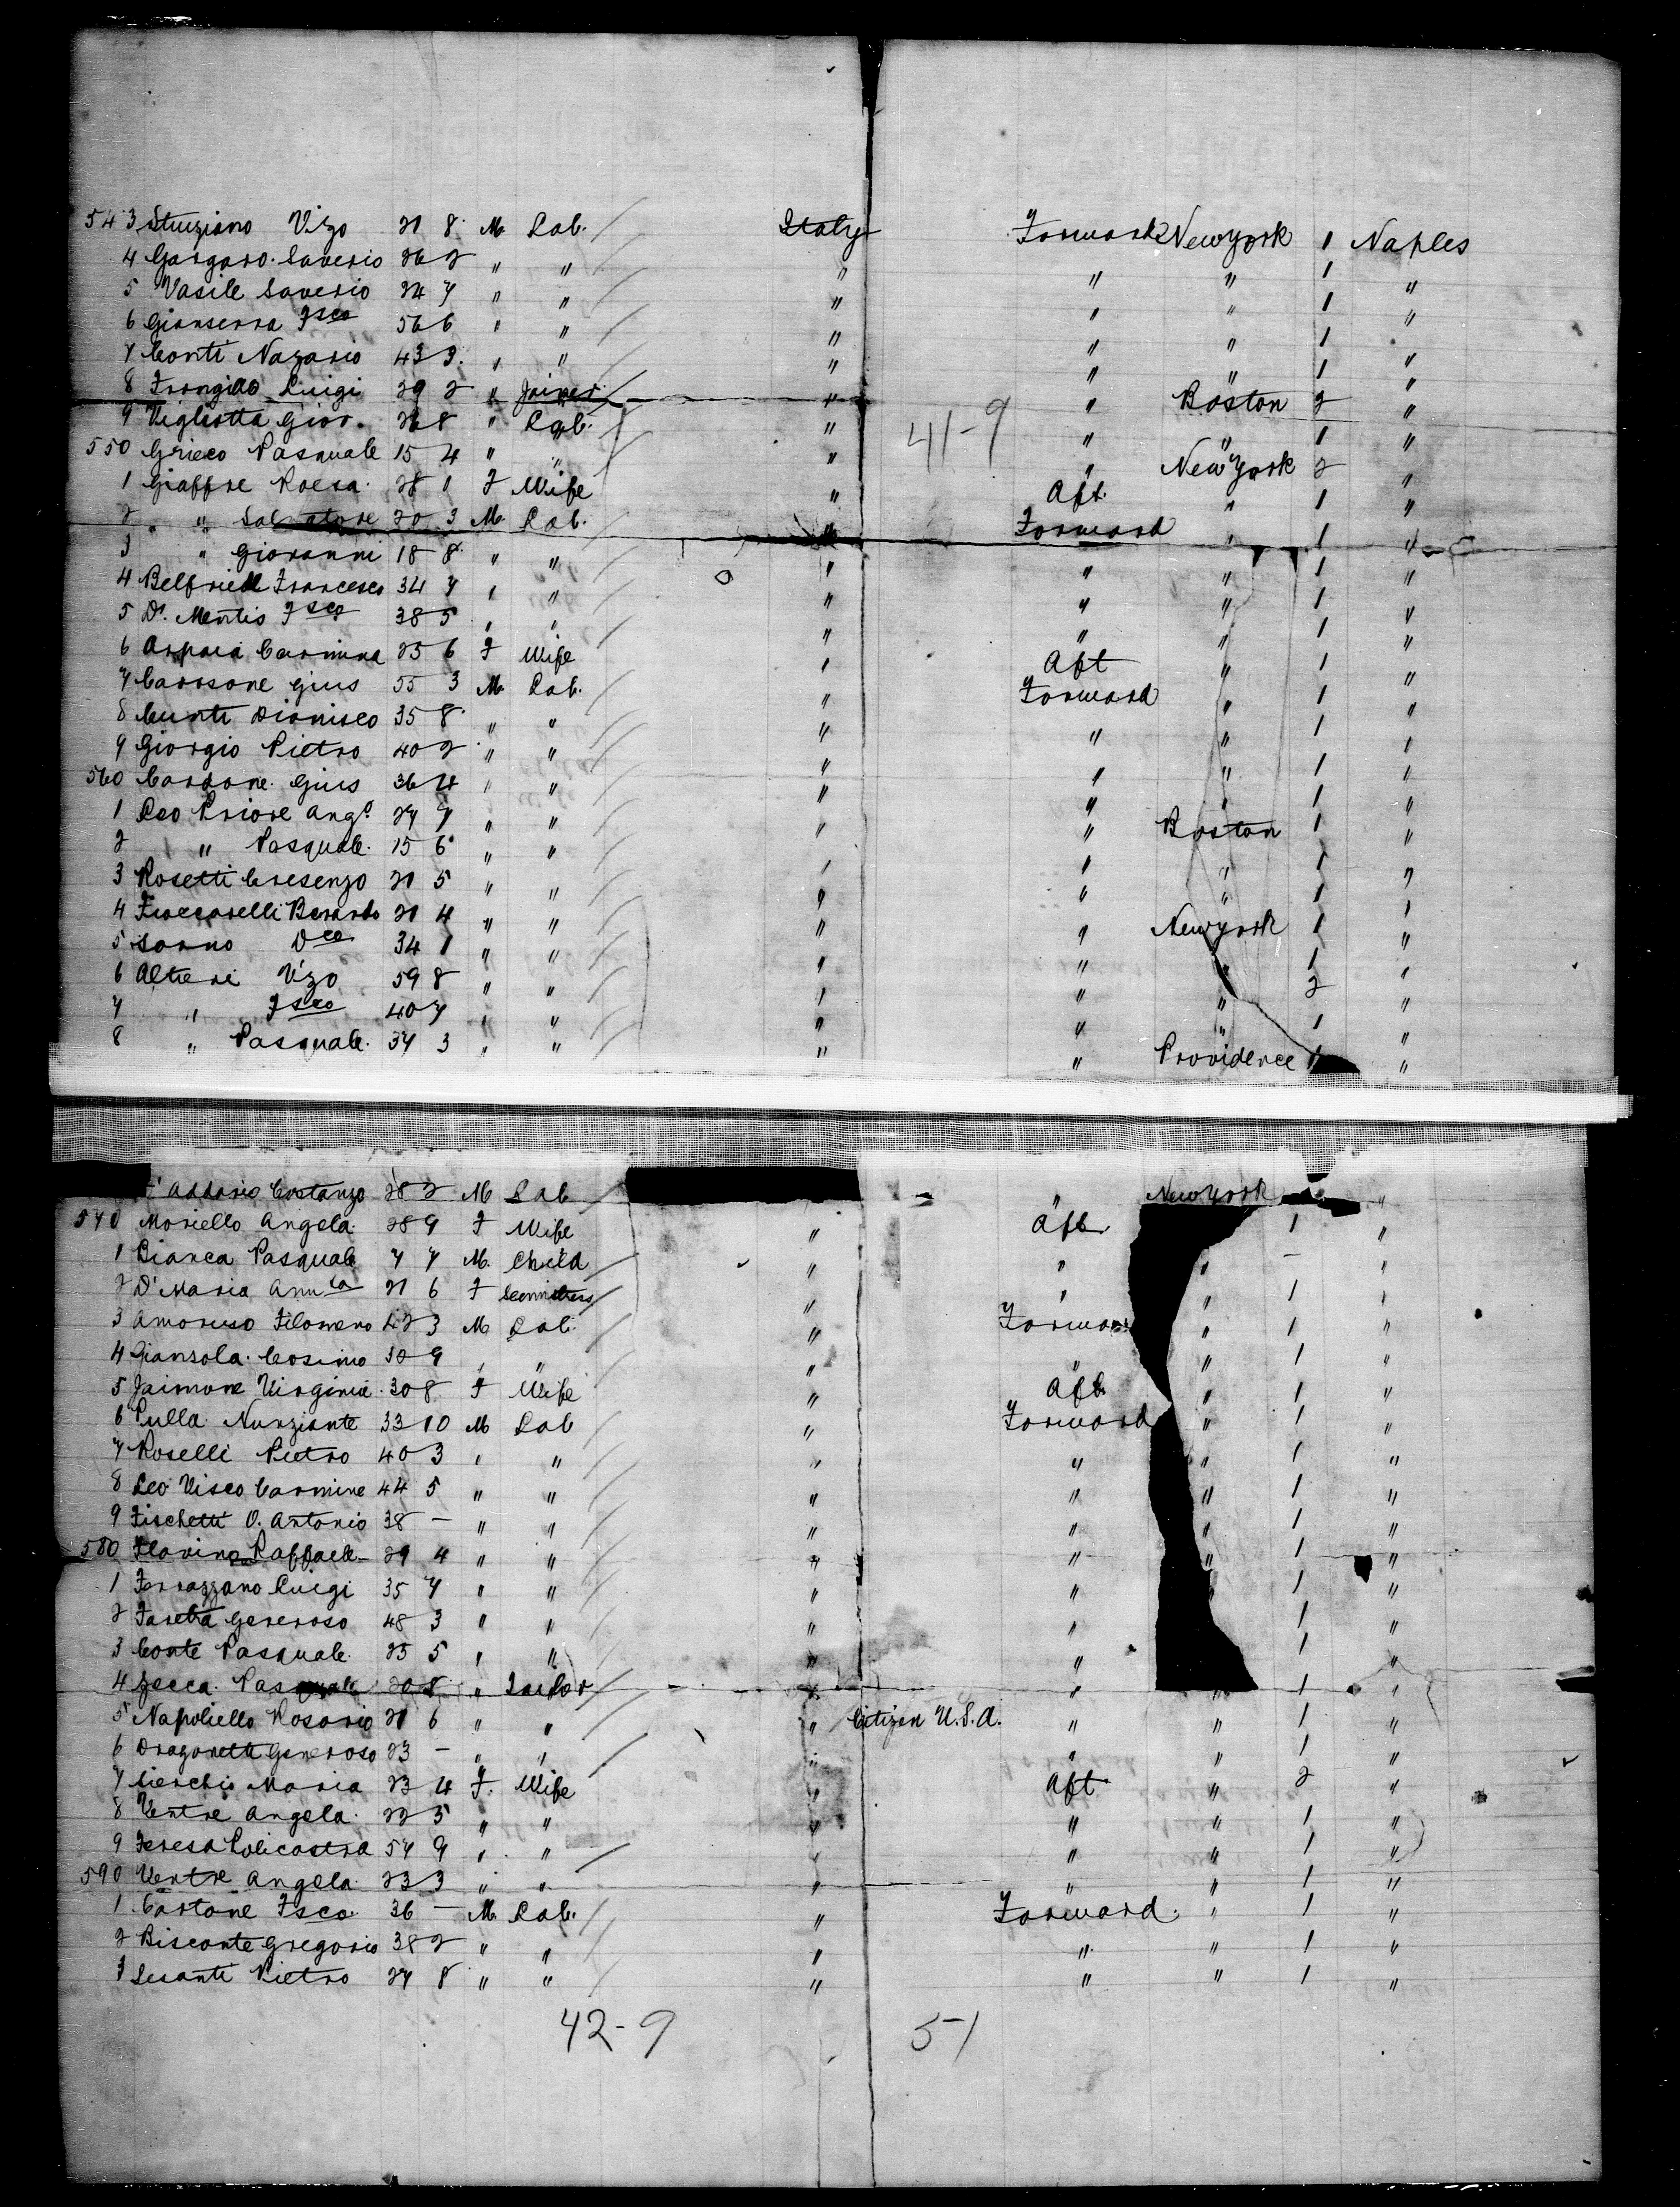 543 Stunziano Vizo 21 8 M. Lab. Italy Forward New York 1 Naples
4 Gargaro Saverio 26 2 " " " " " 1 "
5 Vasile Saverio 24 7 " " " " " 1 "
6 Gianserra Fsco 56 6 " " " " " 1 "
7 Conti Nazario 43 3 " " " " " 1 "
8 Frongillo Luigi 29 2 " Joiner " " Boston 2 "
9 Vigliotta Giov. 26 8 " Lab. " " " 1 "
41-9
550 Grieco Pasquale 15 4 " " " " New York 2 "
1 Giaffre Roesa 28 1 F Wife " Aft. " 1 "
2 " Salvatore 20 3 M. Lab. " Forward " 1 "
3 " Giovanni 18 8 " " " " " 1 "
4 Francesco 34 7 " " " " " 1 "
5 Di Mentis Fsco 38 5 " " " " " 1 "
6 Arpaia Carmina 25 6 F Wife " Aft " 1 "
7 Carrsone Gius 55 3 M. Lab. " Forward " 1 "
8 Cunti Dioniseo 35 8 " " " " " 1 "
9 Giorgio Pietro 40 2 " " " " " 1 "
560 Cardone Gius 36 4 " " " " " 1 "
1 Leo Priore Ango 27 7 " " " " Boston 1 "
2 " Pasquale 15 6 " " " " " 1 "
3 Rosetti Cresenzo 21 5 " " " " " 1 "
4 Berardo 21 4 " " " " New York 1 "
5 Sarno Dco 34 1 " " " " " 1 "
6 Altieri Vizo 59 8 " " " " " 2 "
7 " Fsco 40 7 " " " " " 1 "
8 " Pasquale 37 3 " " " " Providence 1 "
D'Addario Costanzo 28 2 M Lab " New York "
570 Moriello Angela 28 9 F Wife " Aft 1 "
1 Bianca Pasquale 7 7 M. Child " " " – "
2 D'Maria Annta 21 6 F " " " 1 "
3 Amoruso Filomeno 42 3 M Lab. " Forward " 1 "
4 Giansola Cosimo 30 9 " " " " " 1 "
5 Jaimone Virginia 30 8 F Wife " Aft. " 1 "
6 Pulla Nunziante 33 10 M Lab " Forward " 1 "
7 Roselli Pietro 40 3 " " " " " 1 "
8 Leo Visco Carmine 44 5 " " " " " 1 "
9 Fischetti O. Antonio 38 – " " " " " 1 "
580 Flavino Raffaele 29 4 " " " " " 1 "
1 Ferrazzano Luigi 35 7 " " " " " 1 "
2 Generoso 48 3 " " " " 1 "
3 Conte Pasquale 25 5 " " " " 1 "
4 Zecca Pasquale 20 8 " Tailor " " " 1 "
5 Napoliello Rosario 21 6 " " " Citizen U.S.A. " " 1 "
6 Dragonetti Generoso 23 – " " " " " 1 "
7 Cierchio Maria 23 4 F. Wife " Aft " 2 "
8 Ventre Angela 22 5 " " " " " 1 "
9 Teresa Policastra 57 9 " " " " " 1 "
590 Ventre Angela 23 3 " " " " " 1 "
1 Cartone Fsco 36 – M. Lab. " Forward " 1 "
2 Bisconte Gregorio 38 2 " " " " " 1 "
3 Lisanti Pietro 27 8 " " " " " 1 "
42-9 51